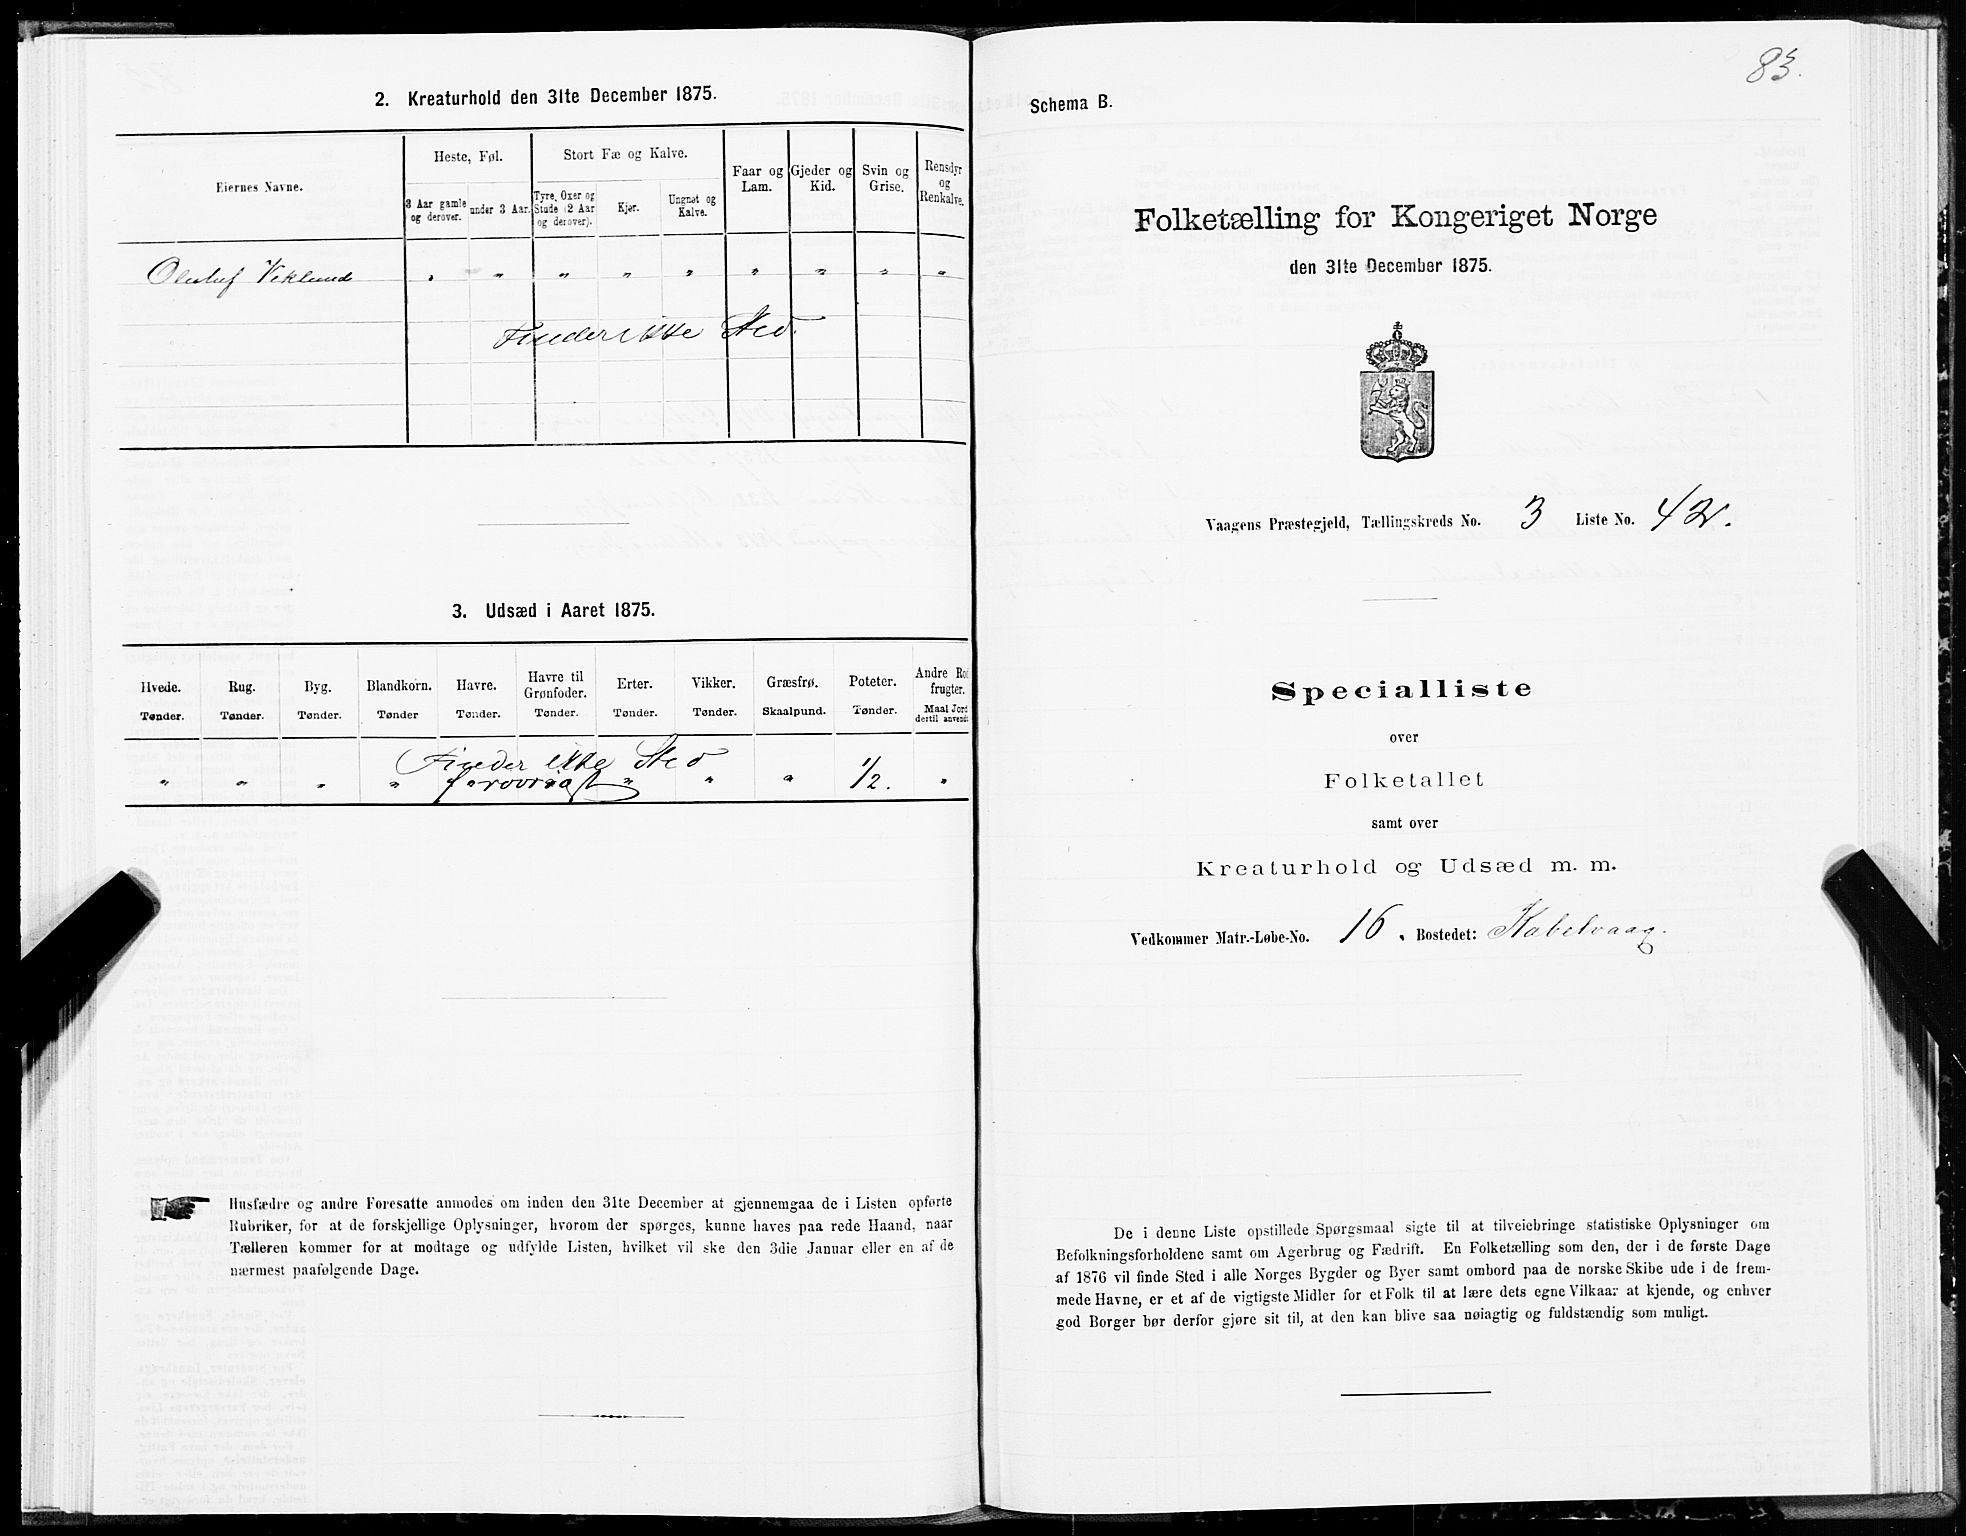 2. Kreaturhold den 31te December 1875.
Eiernes Navne.
Heste, Føl.
3 Aar gamle og derover.
under 3 Aar.
Stort Fæ og Kalve.
Tyre, Oxer og Stude (2 Aar og derover).
Kjør.
Ungnøt og Kalve.
Faar og Lam.
Gjeder og Kid.
Svin og Grise.
Rensdyr og Renkalve.
Viklund " " " " " " " " "
Finder ikke Sted.
3. Udsæd i Aaret 1875.
Hvede. Rug. Byg. Blandkorn. Havre. Havre til Grønfoder. Erter. Vikker. Græsfrø. Poteter. Andre Ro frugter.
Tønder. Tønder. Tønder. Tønder Tønder. Tønder. Tønder. Tønder. Skaalpund. Tønder. Maal Jord dertil anvendt
Finder ikke Sted
" " " " " " " 1/2. "
Husfædre og andre Foresatte anmodes om inden den 31te December at gjennemgaa de i Listen opførte
Rubriker, for at de forskjellige Oplysninger, hvorom der spørges, kunne haves paa rede Haand, naar
Tælleren kommer for at modtage og udfylde Listen, hvilket vil ske den 3die Januar eller en af de
nærmest paafølgende Dage.
83.
Schema B.
Folketælling for Kongeriget Norge
den 31te December 1875.
Vaagens Præstegjeld, Tællingskreds No. 3 Liste No. 42.
Specialliste
over
Folketallet
samt over
Kreaturhold og Udsæd m. m.
Vedkommer Matr.-Løbe-No. 16. Bostedet: Kabelvaag.
De i denne Liste opstillede Spørgsmaal sigte til at tilveiebringe statistiske Oplysninger om
Befolkningsforholdene samt om Agerbrug og Fædrift. En Folketælling som den, der i de første Dage
af 1876 vil finde Sted i alle Norges Bygder og Byer samt ombord paa de norske Skibe ude i de frem-
mede Havne, er et af de vigtigste Midler for et Folk til at lære dets egne Vilkaar at kjende, og enhver
god Borger bør derfor gjøre sit til, at den kan blive saa nøiagtig og fuldstændig som muligt.